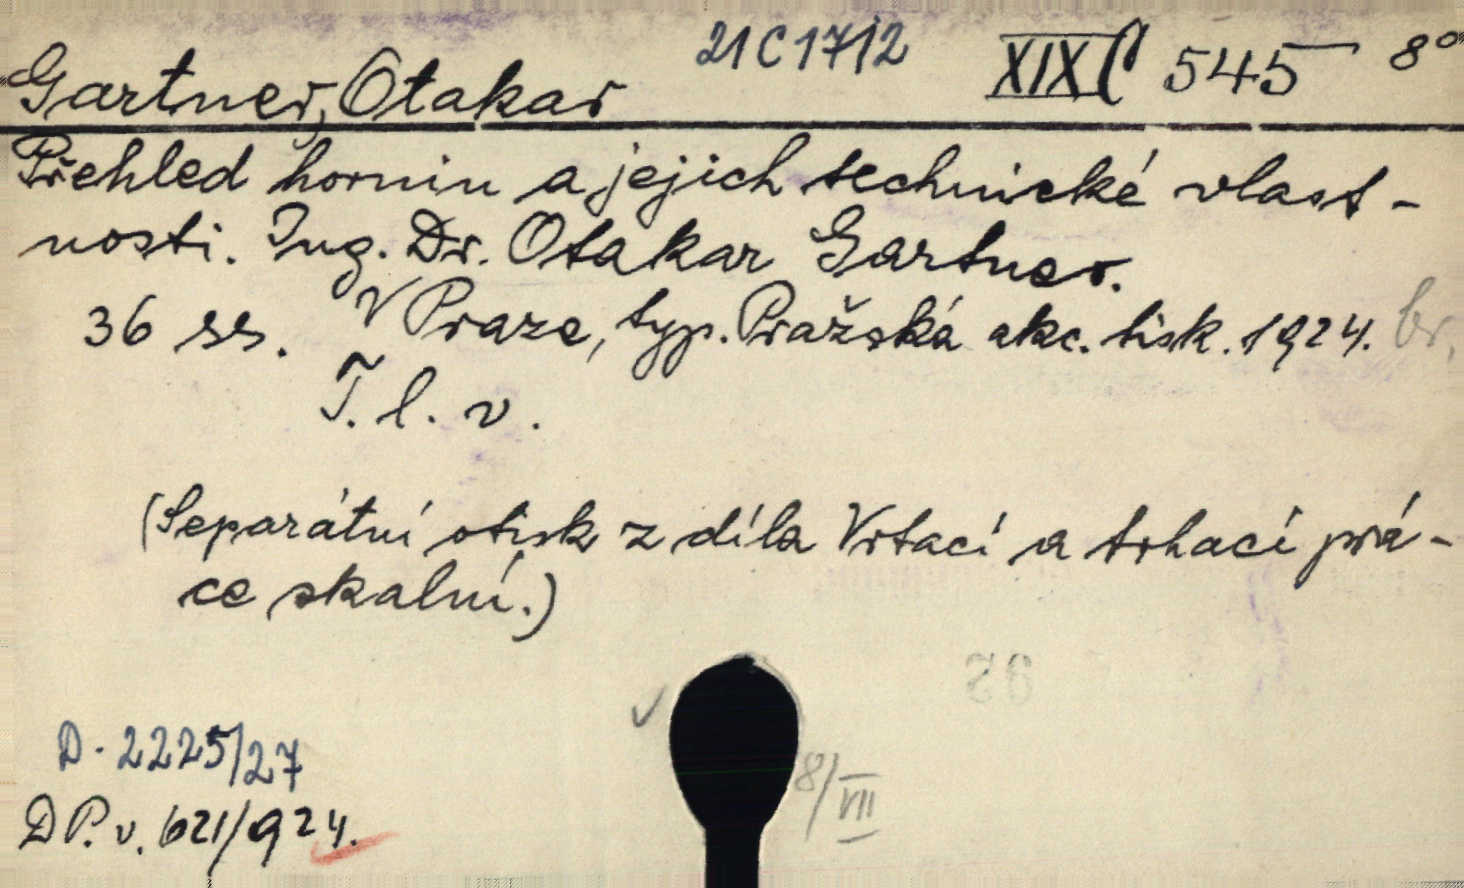 21 C 1712 XIX C 545 8°
Gartner, Otakar
Přehled hornin a jejich technické vlast-
nosti. Ing. Dr. Otakar Gartner.
36 ss. V Praze, typ. Pražská akc. tisk. 1924. br.
T. l. v.
(Separátní otisk z díla Vrtací a trhací prá-
ce skalní.)
D. 2225/27
8/VII
DP. v. 621/924.